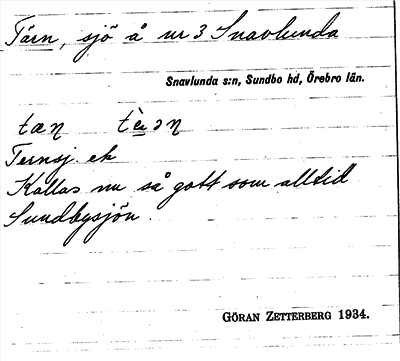 Tärn, sjö å nr 3 Snavlunda
Snavlunda s:n, Sundbo hd, Örebro län.
tæɳ tὲ̱ərɳ
Ternsj. ek
Kallas nu så gott som alltid
Sundbysjön.
GÖRAN ZETTERBERG 1934.